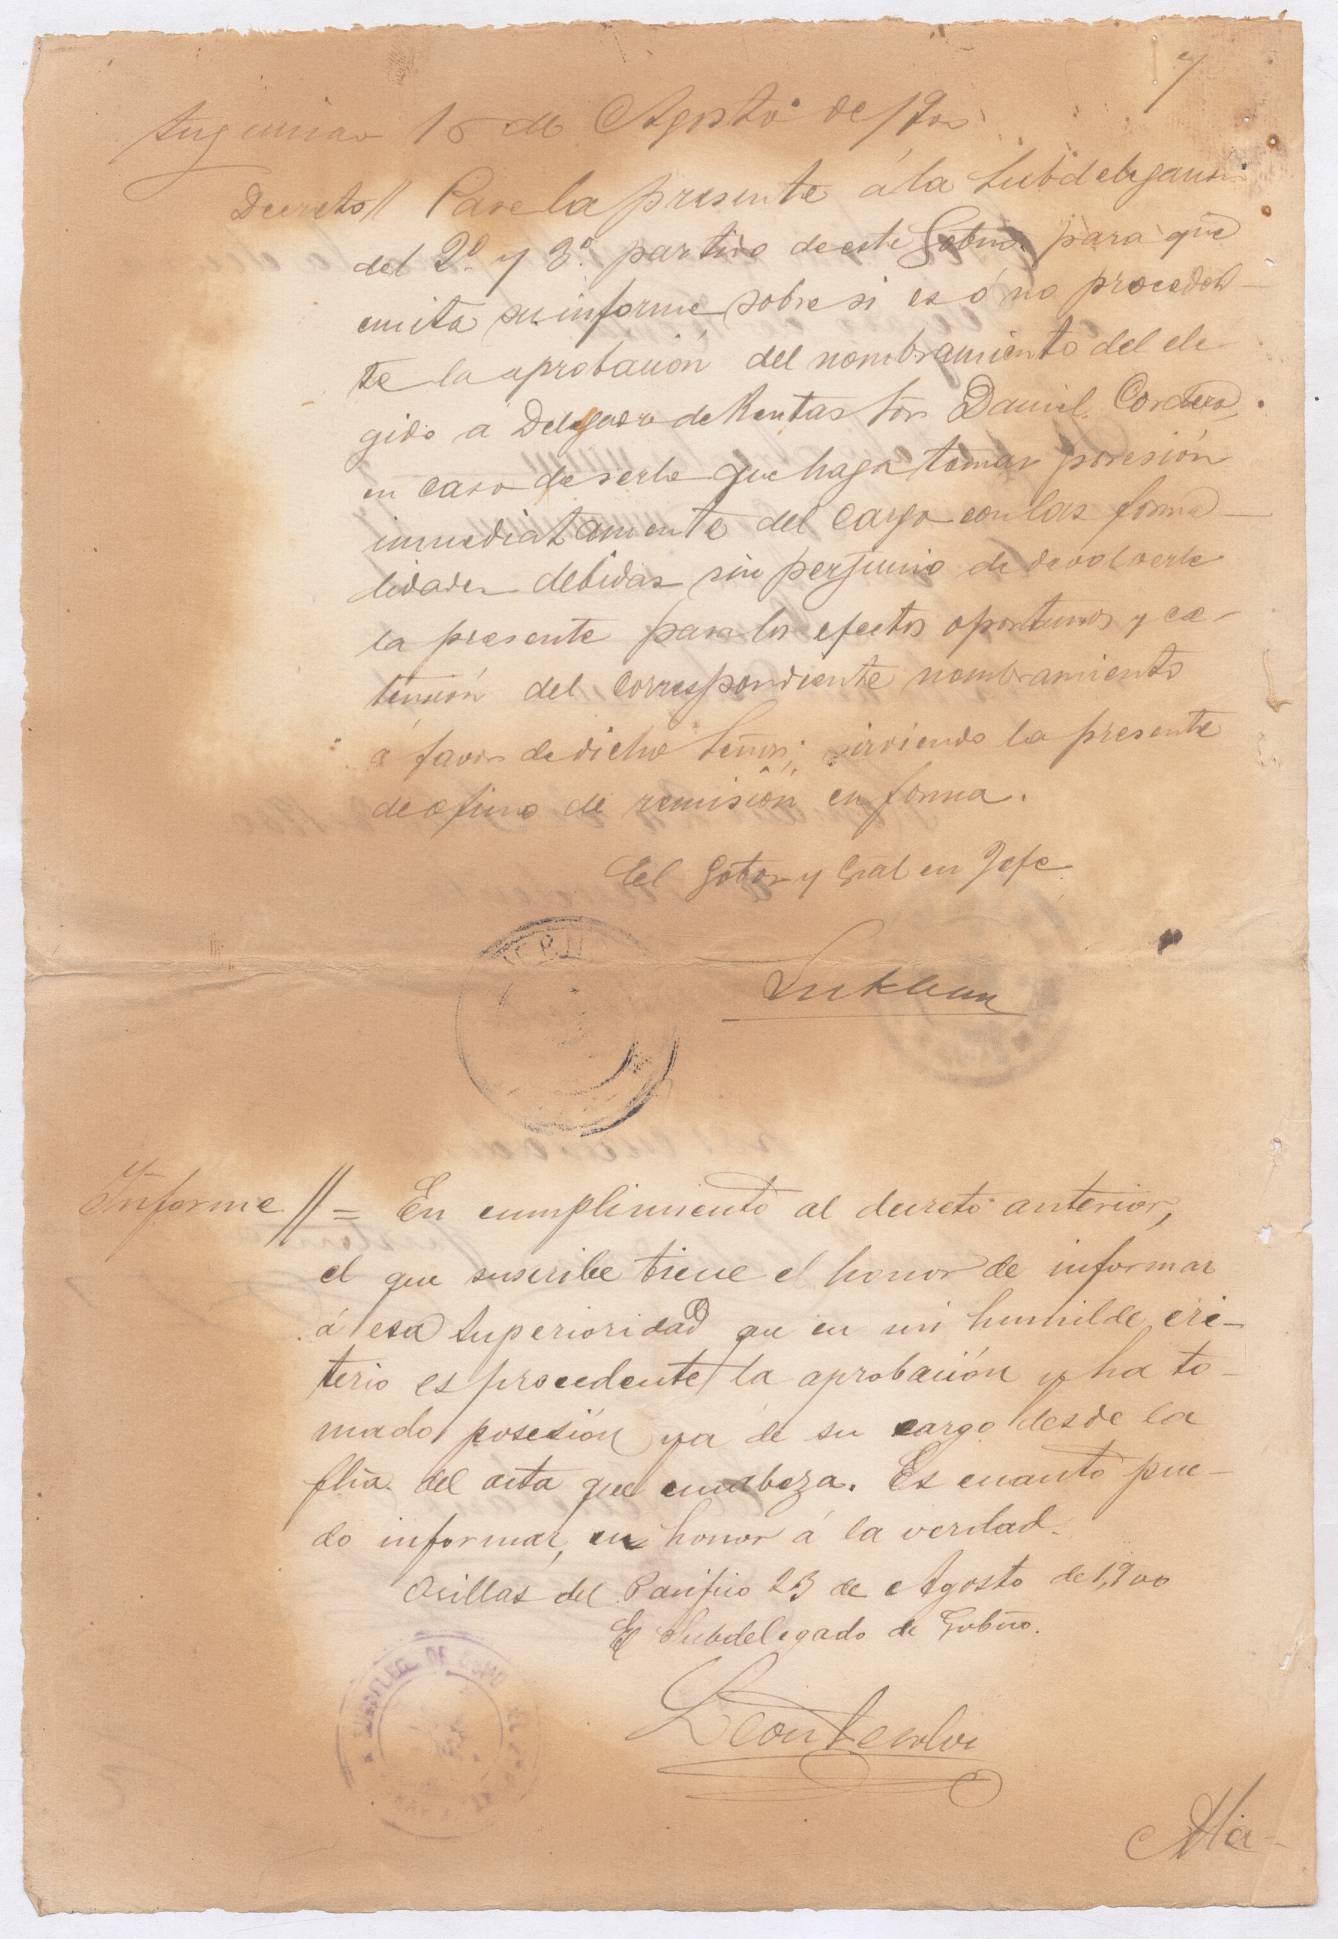 15 de Agosto de 1900
Decreto // Pase la presente á la Subdelegación
del 2º. y 3º. partido de este Gobno. para que
emita su informe sobre si es ó no proceden-
te la aprobación del nombramiento del ele-
gido a Delegado de Rentas Sor. Daniel Cordero,
en caso de serle que haga tomar posesión
inmediatamente del cargo con las forma-
lidades debidas sin perjuicio de devolverle
la presente para los efectos oportunos y ex-
tensión del correspondiente nombramiento
á favor de dicho Señor; sirviendo la presente
de oficio de remisión en forma.
El Gobor y Gral en Jefe
Lukban
Informe // = En cumplimiento al decreto anterior,
el que suscribe tiene el honor de informar
á esa Superioridad que en mi humilde cri-
terio es procedente la aprobación y ha to-
mado posesión ya de su cargo desde la
fha. del acta que encabeza. Es cuanto pue-
do informar, en honor á la verdad.
Orillas del Pacifico 23 de Agosto de 1,900
El Subdelegado de Gobno.
SUBDELEG. DE GOBNO